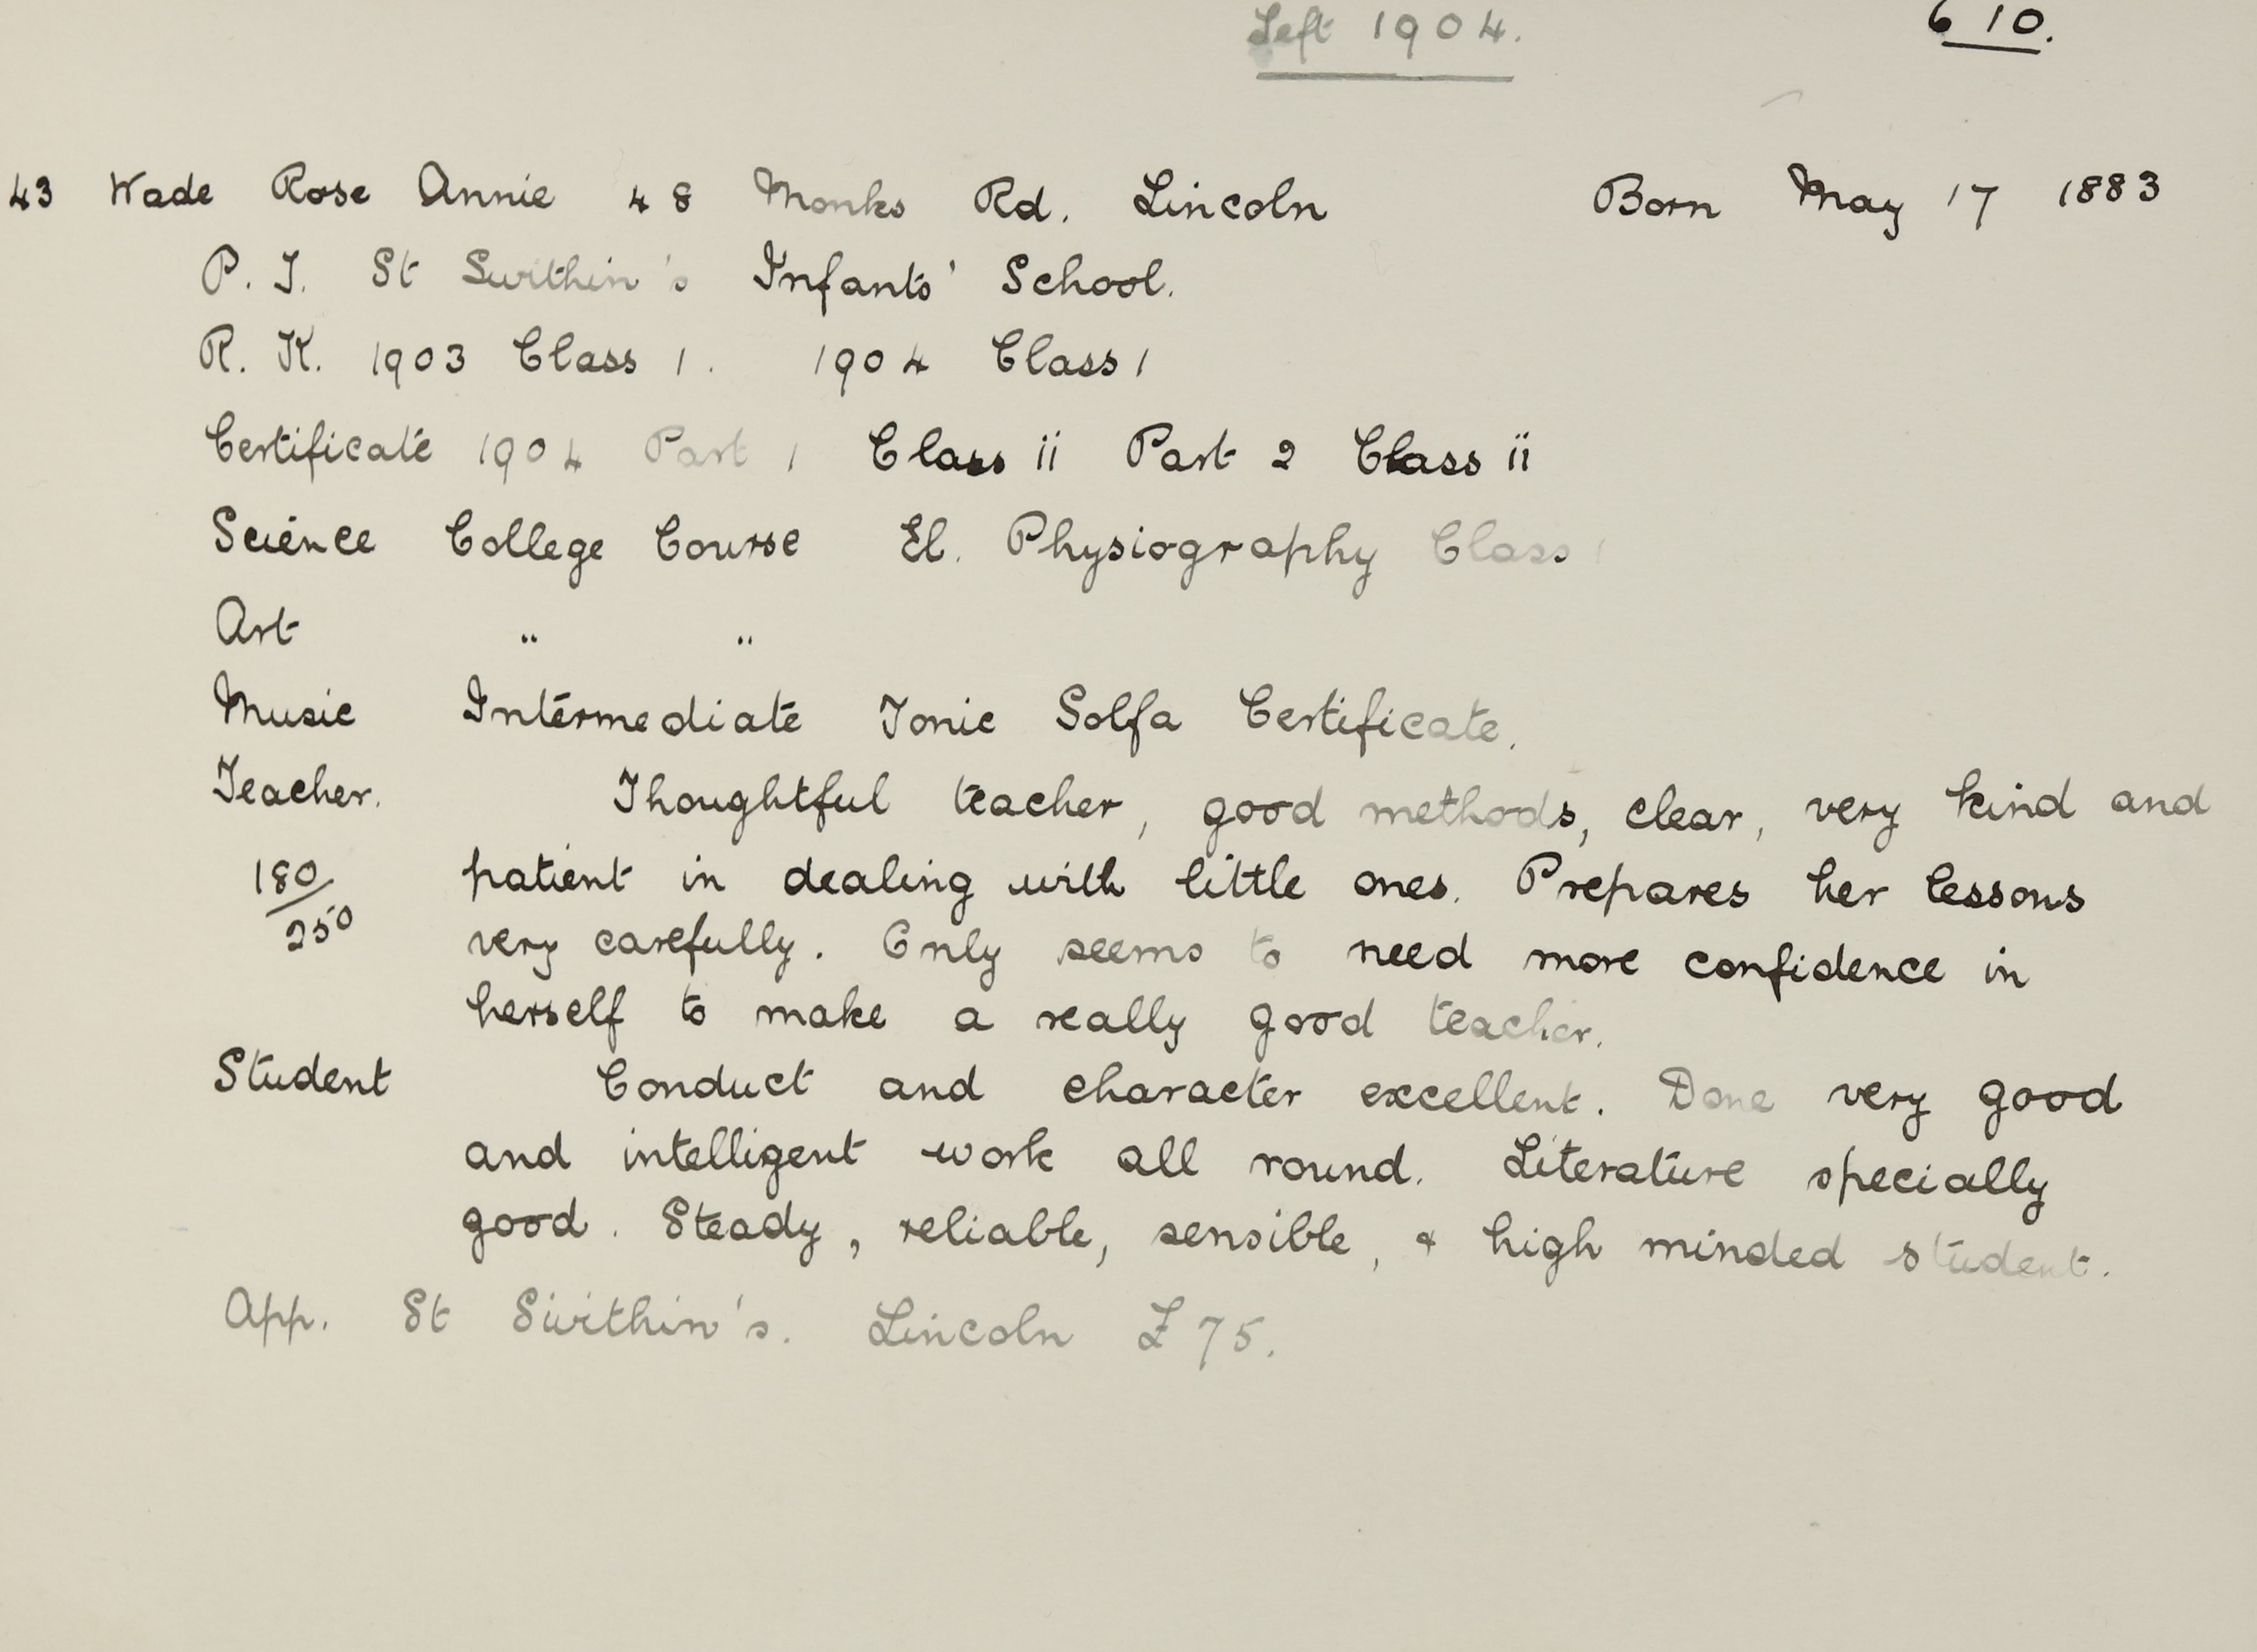 Left 1904. 6 10.
43 Wade Rose Annie 48 Monks Rd. Lincoln Born May 17 1883
P. T. St Swithin's Infants' School.
R. K. 1903 Class 1. 1904 Class 1
Certificate 1904 Part 1 Class ii Part 2 Class ii
Science College Course El. Physiography Class 1
Art " "
Music Intermediate Tonic Solfa Certificate.
Teacher. Thoughtful teacher, good methods, clear, very kind and
180/250 patient in dealing with little ones. Prepares her lessons
very carefully. Only seems to need more confidence in
herself to make a really good teacher.
Student Conduct and character excellent. Done very good
and intelligent work all round. Literature specially
good. Steady, reliable, sensible, & high minded student.
App. St Swithin's. Lincoln £75.